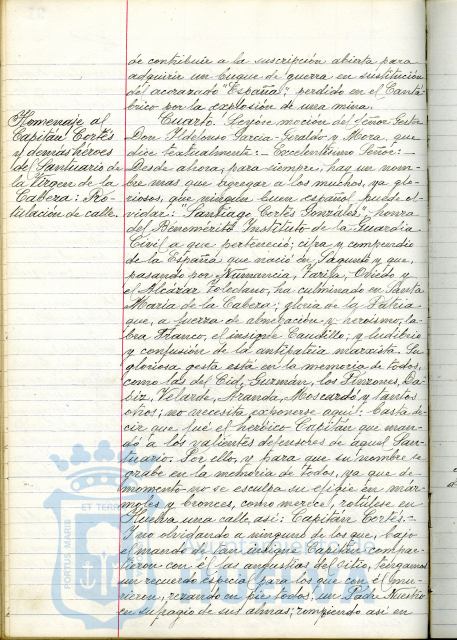 de contribuir a la suscripción abierta para
adquirir un buque de guerra en sustitución
del acorazado "España", perdido en el Cantá-
brico por la explosión de una mina.
Homenaje al
Capitán Cortés
y demás héroes
del Santuario de
la Virgen de la
Cabeza: Ro-
tulación de calle.
Cuarto. Leyóse moción del señor Gestor
Don Ildefonso García-Geraldo y Mora, que
dice textualmente:- Excelentísimo Señor:-
Desde ahora, para siempre, hay un nom-
bre mas que agregar a los muchos, ya glo-
riosos, que ningún buen español puede ol-
vidar: "Santiago Cortés González"; honra
del Benemérito Instituto de la Guardia
Civil a que perteneció; cifra y compendio
de la España que nació en Sagunto y que,
pasando por Numancia, Tarifa, Oviedo y
el Alcázar toledano, ha culminado en Santa
María de la Cabeza; gloria de la Patria
que, a fuerza de abnegación y heroismo, la-
bra Franco, el insigne Caudillo; y ludibrio
y confusión de la antipatria marxista. Su
gloriosa gesta está en la memoria de todos,
como las del Cid, Guzmán, los Pinzones, Da-
oiz, Velarde, Aranda, Moscardó y tantos
otros; no necesita exponerse aquí: basta de-
cir que fué el heróico Capitán que man-
dó a los valientes defensores de aquel San-
tuario. Por ello, y para que su nombre se
grabe en la memoria de todos, ya que de
momento no se esculpa su efigie en már-
moles y bronces, como merece, rotúlese en
Huelva una calle, así: Capitán Cortés.-
Y no olvidando a ninguno de los que, bajo
el mando de tan insigne Capitán compar-
tieron con él las angustias del sitio, tengamos
un recuerdo especial para los que con él mu-
rieron, rezando en pié todos, un Padre Nuestro
en sufragio de sus almas; rompiendo así en
PORTUS MARIS ET TERRAE
Ayuntamiento de